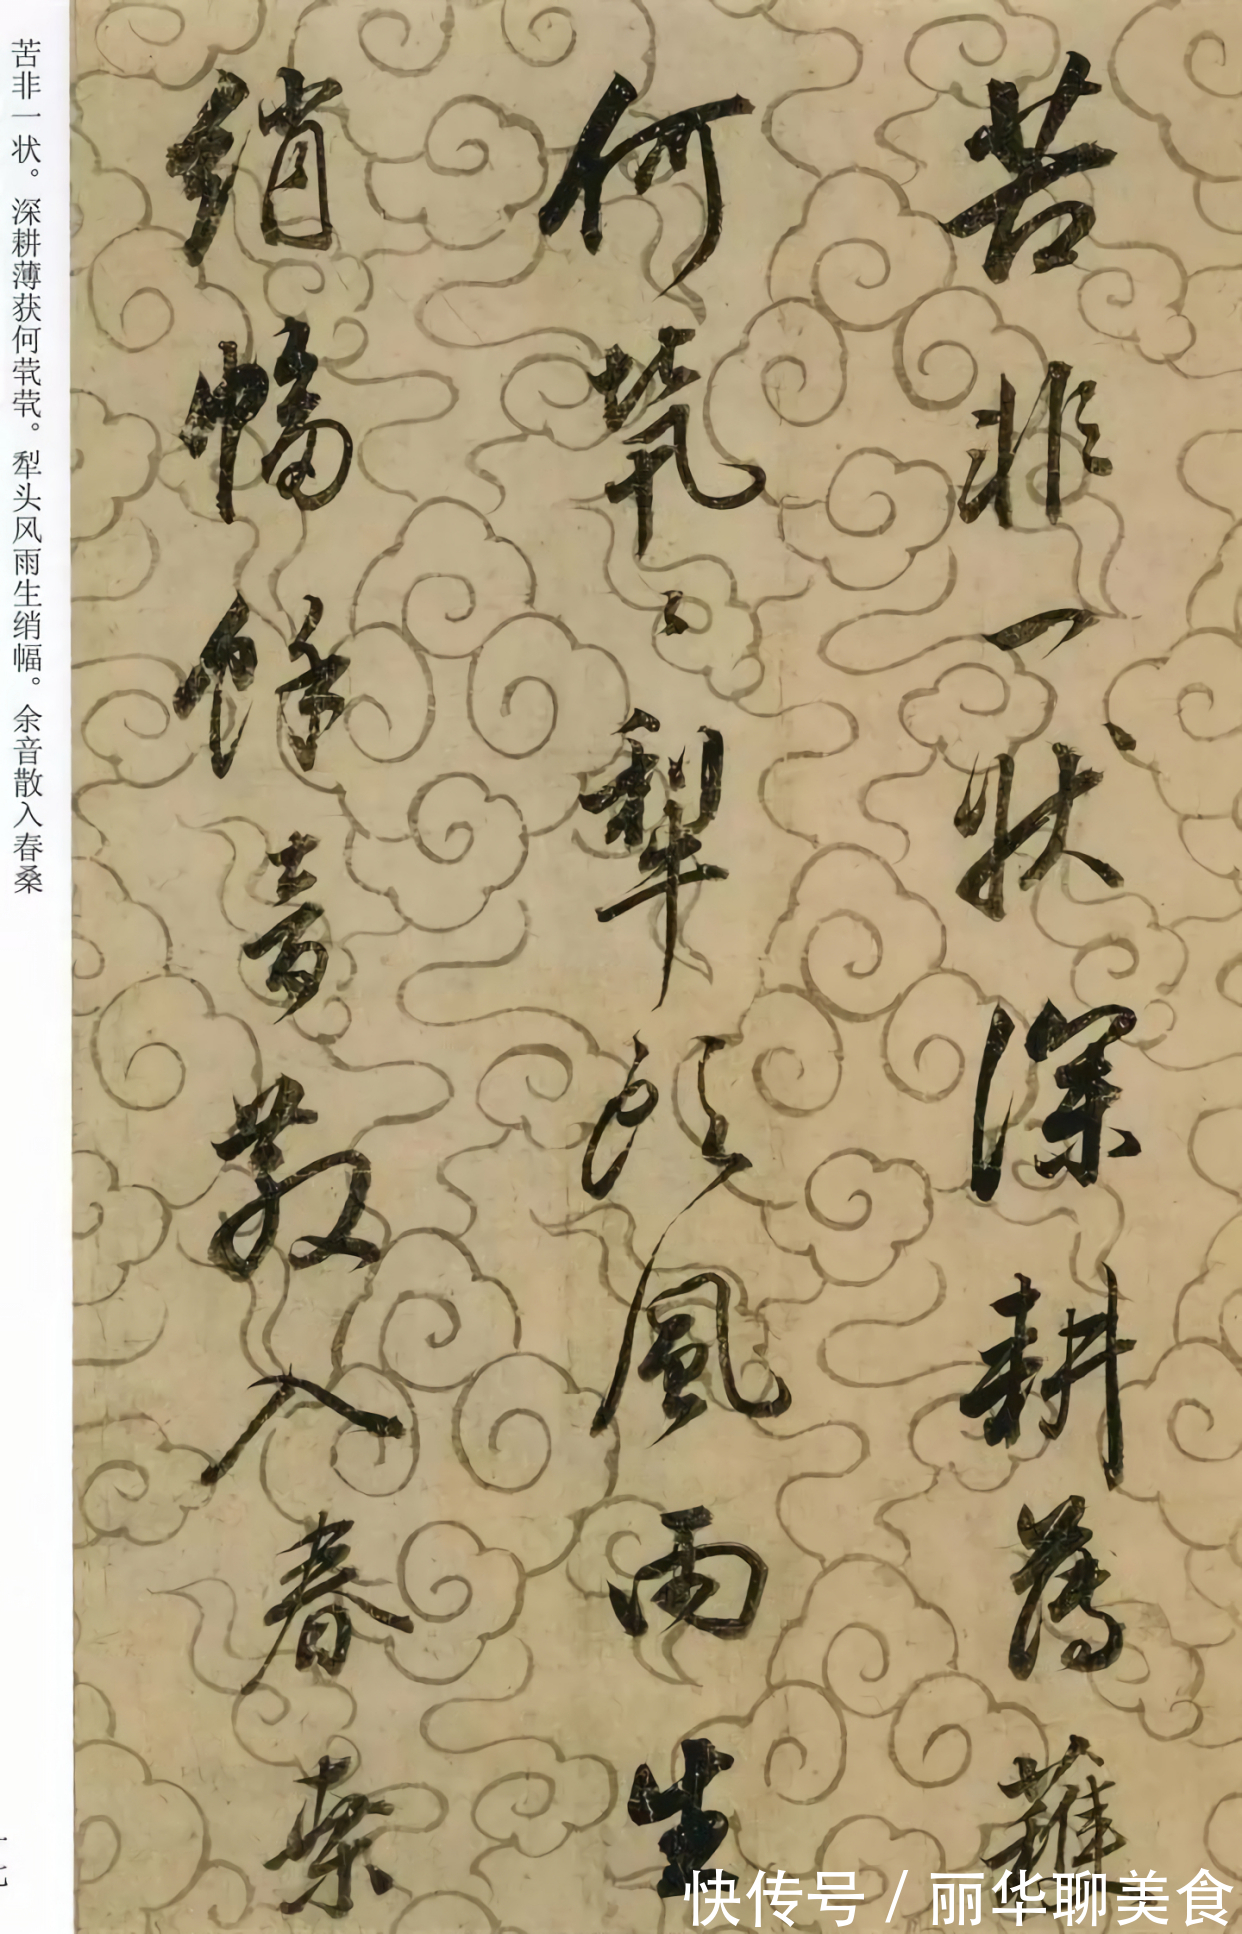 苦非一狀深耕薄穫
何煢〻犁頭風雨生
綃幅餘音散入春桒
苦非一状。深耕薄获何茕茕。犁头风雨生绡幅。余音散入春桑
快传号 / 丽华聊美食